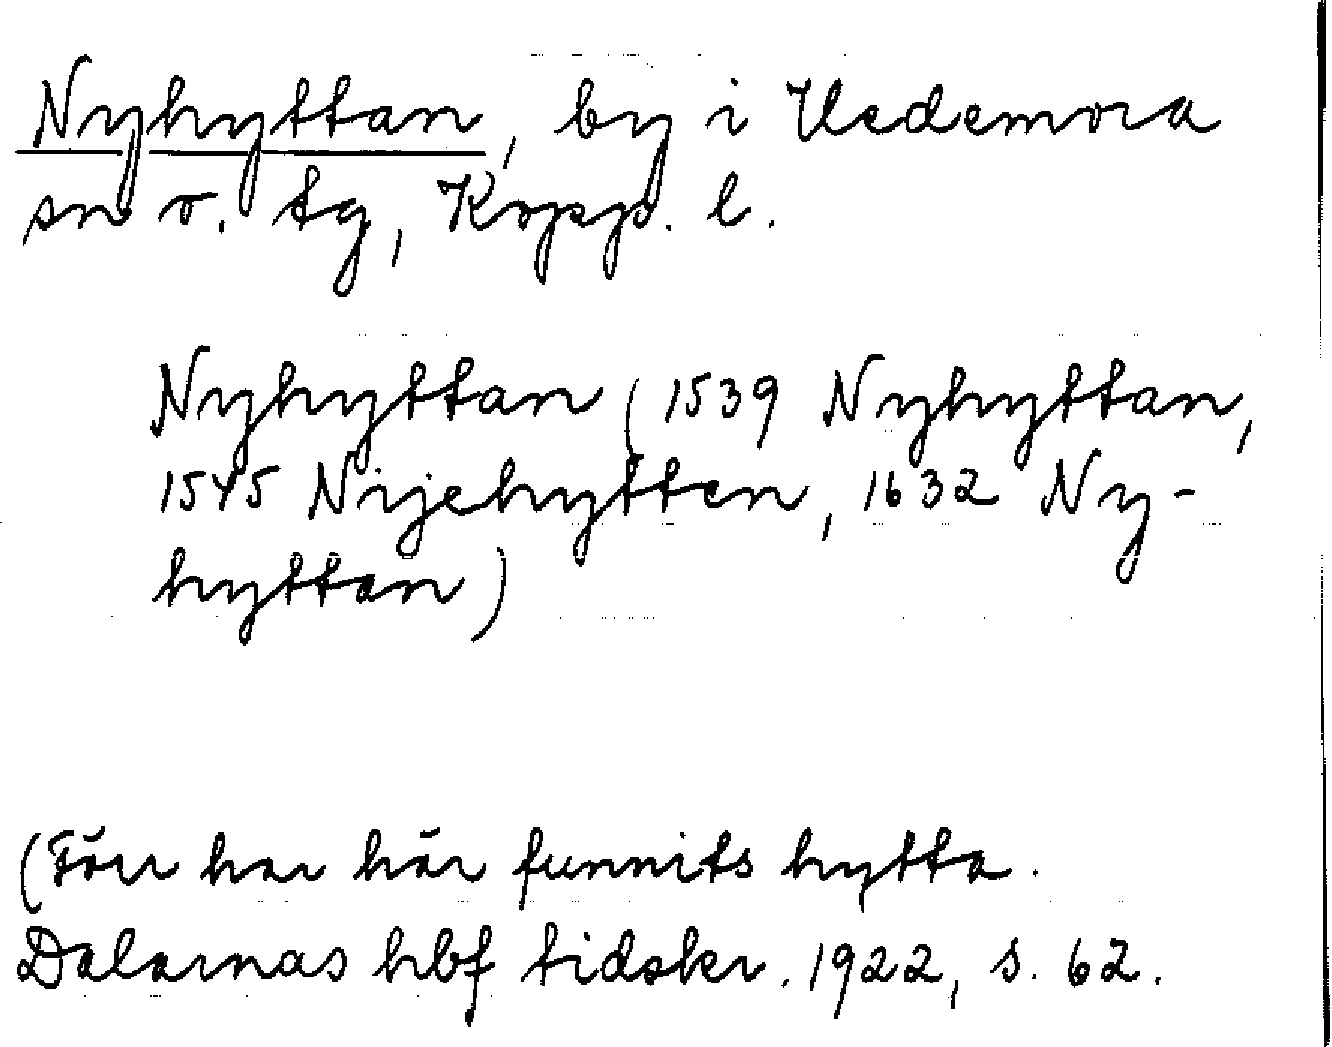 Nyhyttan, by i Vedemora
sn o. tg, Kopp. l.
Nyhyttan (1539 Nyhyttan,
1545 Nijehytten, 1632 Ny-
hyttan)
(Förr har här funnits hytta.
Dalarnas hbf tidskr. 1922, s. 62.